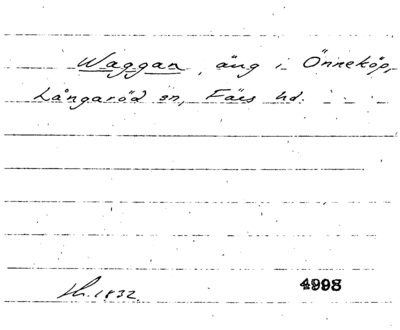 Waggan, äng i Önneköp,
Långaröd sn, Färs hd.
Sk. 1832.
4998